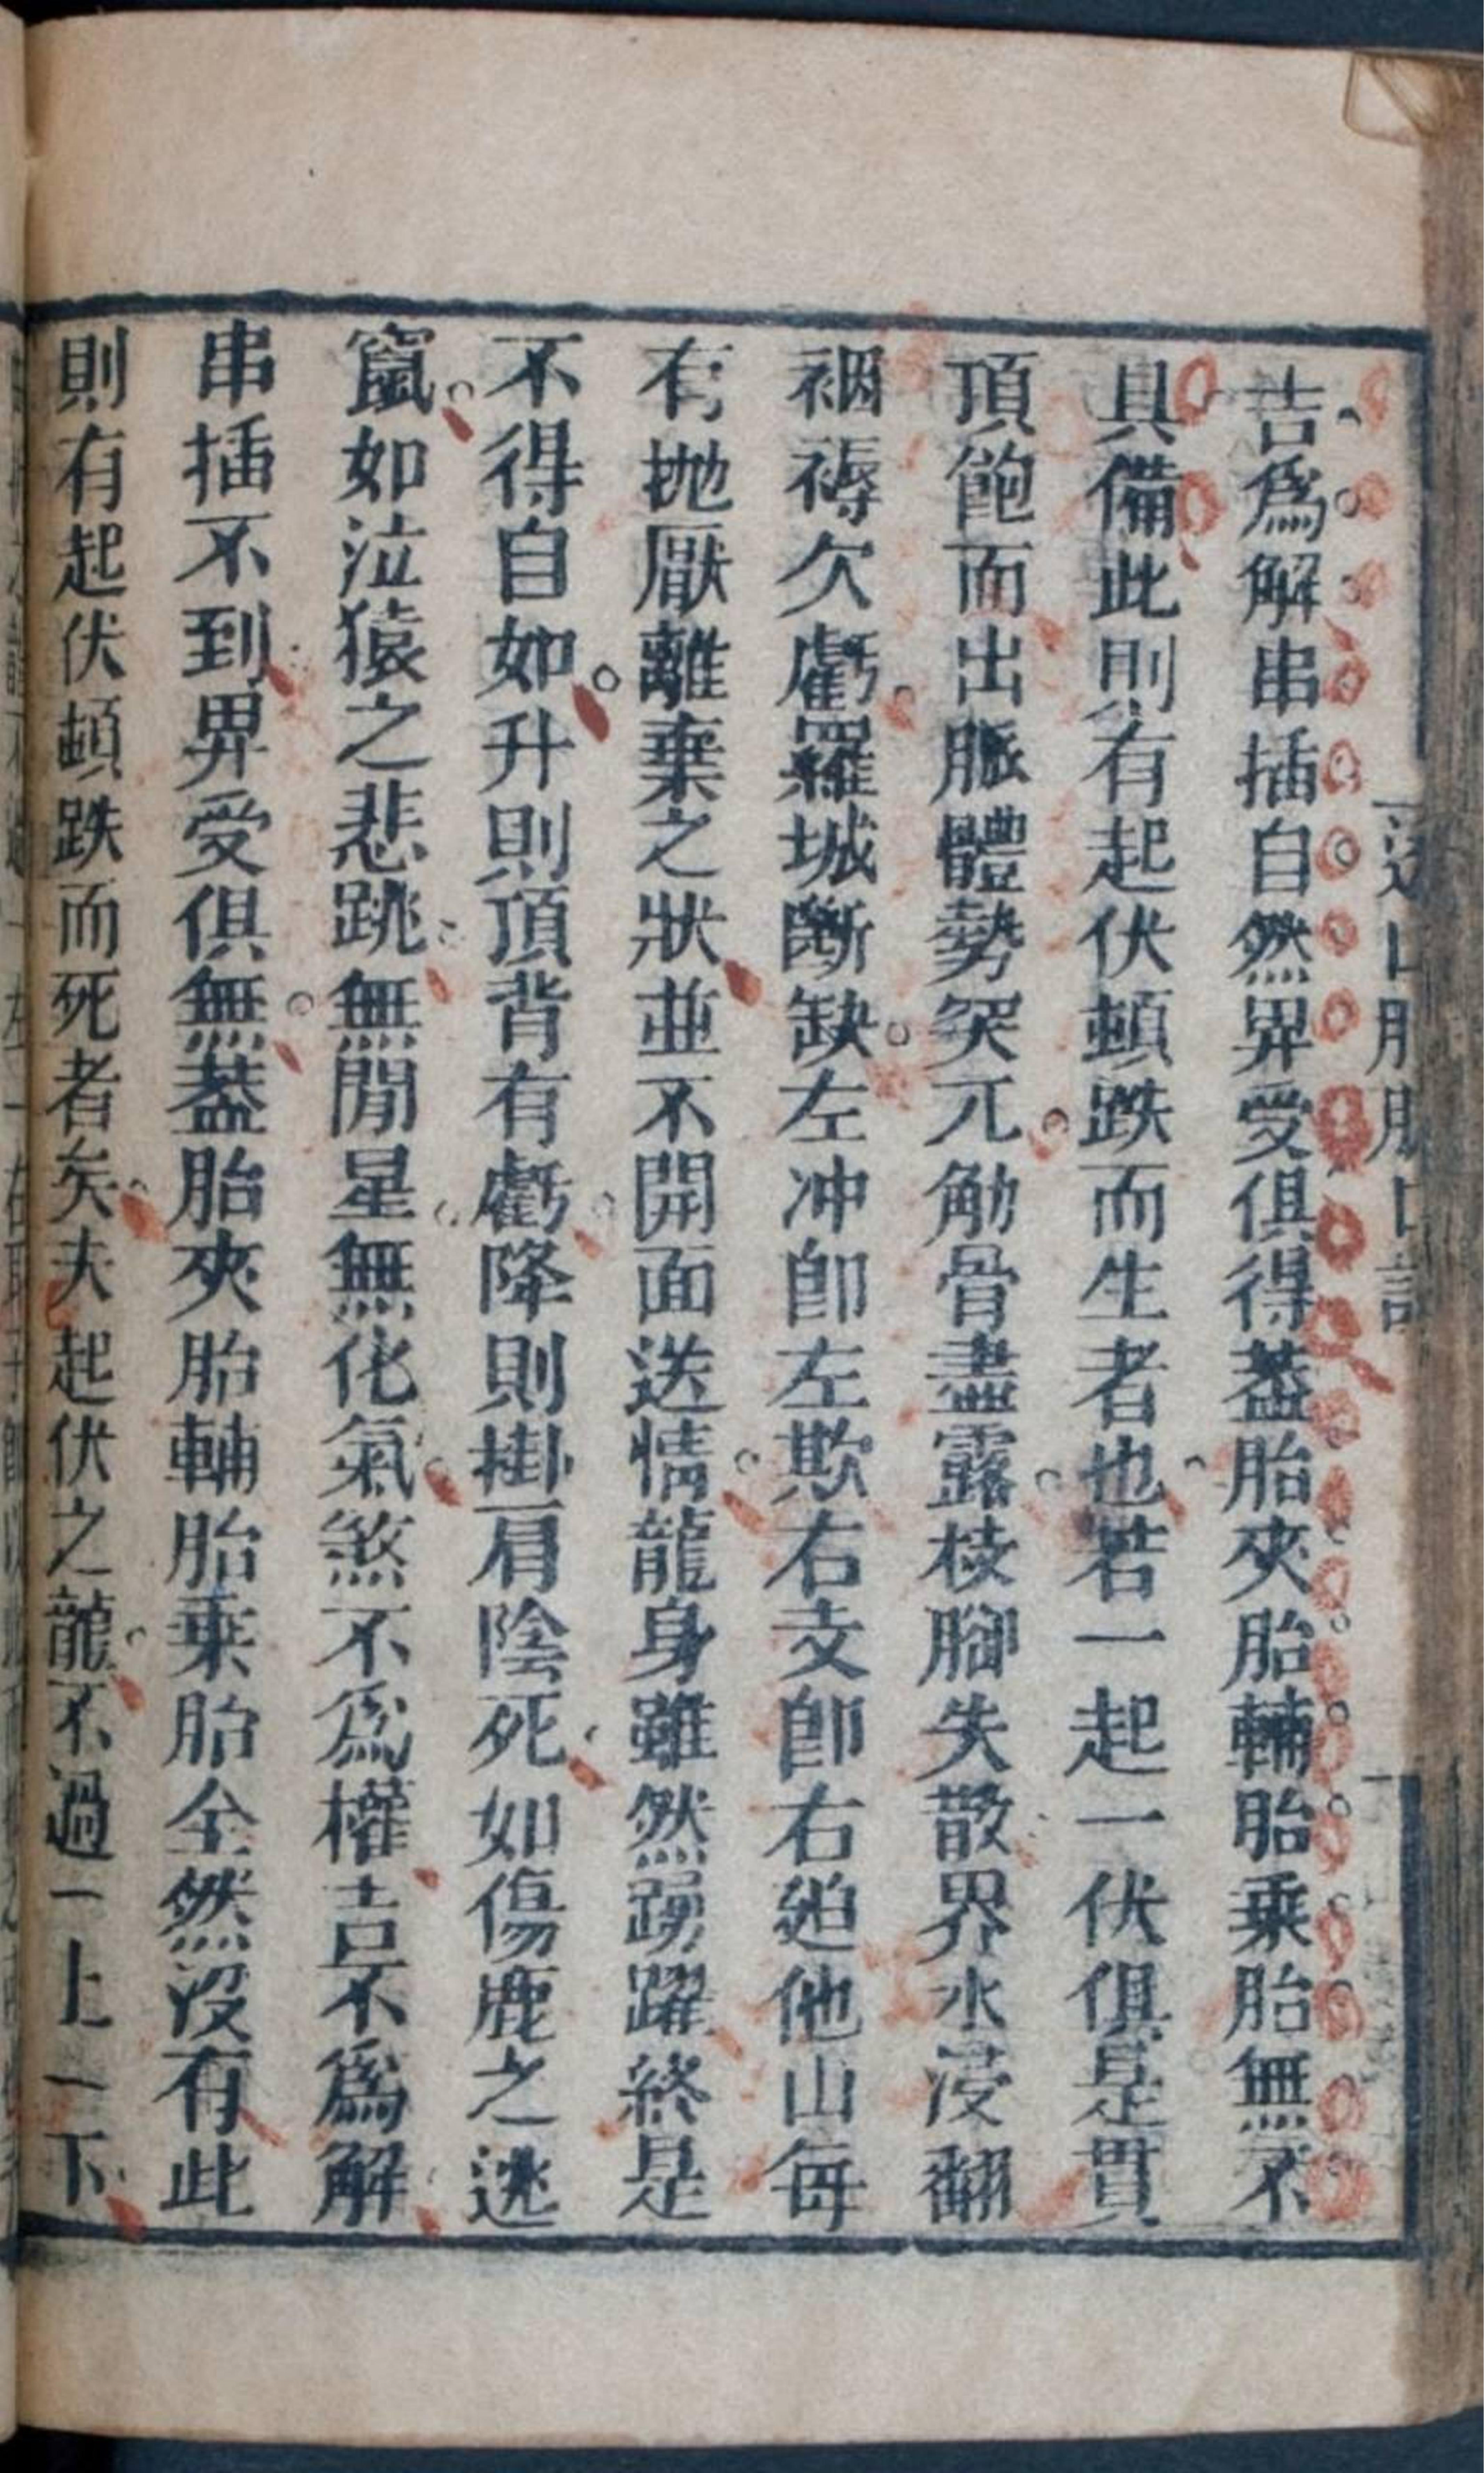 吉爲解串插自然界受俱得葢胎夾胎輔胎乗胎無不
具備此則有起伏頓跌而生者也若一起一伏俱是貫
頂飽而出脈體勢突兀觔骨盡露枝腳失散界水浸翻
裀褥欠虧羅城斷缺左冲卽左欺右支卽右廹他山每
有抛厭離棄之狀並不開面送情龍身雖然踴躍終是
不得自如升則頂背有虧降則掛肩陰死如傷鹿之逃
竄如泣猿之悲跳無閒星無化氣煞不爲權吉不爲解
串插不到界受俱無葢胎夾胎輔胎乗胎全然没有此
則有起伏頓跌而死者矣夫起伏之龍不過一上一下